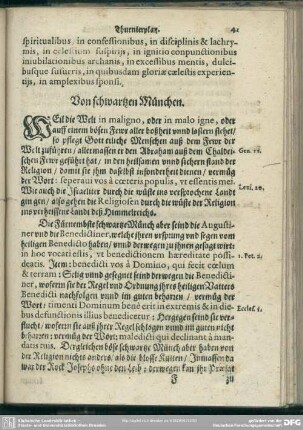 Thurnierplatz.
spiritualibus, in confessionibus, in disciplinis & lachry-
mis, in cælestium suspirijs, in ignitio conpunctionibus
iniubilationibus archanis, in excessibus mentis, dulci-
busque susurris, in quibusdam gloriæ cælestis experien-
tijs, in amplexibus sponsi.
Von schwartzen München.
WEil die Welt in maligno, oder in malo igne, oder
auff einem bösen Fewr aller boßheit vnnd lastern stehet/
so pflegt Gott etliche Menschen auß dem Fewr der
Welt zuführen/ allermassen er den Abraham auß dem Chaldei-
schen Fewr geführt hat/ in den heilsamen vnnd sichern stand der
Religion/ damit sie jhm daselbst insonderheit dienen/ vermüg
der Wort: separaui vos à cæteris populis, vt essentis mei.
Wie auch die Israeliter durch die wüste ins versprochene Landt
gingen/ also gehen die Religiosen durch die wüste der Religion
ins verheissene Landt deß Himmelreichs.
Die Fürnembste schwartze Münch aber seind die Augusti-
ner vnd die Benedictiner, welche jhren vrsprung vnd segen vom
heiligen Benedicto haben/ vnnd derwegen zu jhnen gesagt wirt:
in hoc vocati estis, vt benedictionem hæreditate possi-
deatis. Item: benedicti vos à Domino, qui fecit cœlum
& terram: Selig vnnd gesegnet seind derwegen die Benedicti-
ner, wofern sie der Regel vnd Ordnung jhres heiligen Vatters
Benedicti nachfolgen vnnd im guten beharren/ vermüg der
Wort: timenti Dominum bene erit in extremis & in die-
bus defunctionis illius benedicetur: Hergegen seind sie ver-
flucht/ woferrn sie auß jhrer Regel schlagen vnnd im guten nicht
beharren: vermüg der Wort: maledicti qui declinant à man-
datis tuis. Dergleichen böse schwartze Münch aber haben von
der Religion nichts anders/ als die blosse Kutten/ Inmassen da
war der Rock Josephs ohne den Leib: derwegen kan jhr Prælat
F
zu
Gen. 11.
Levi. 20.
1. Pet. 2.
Eccles. 1.